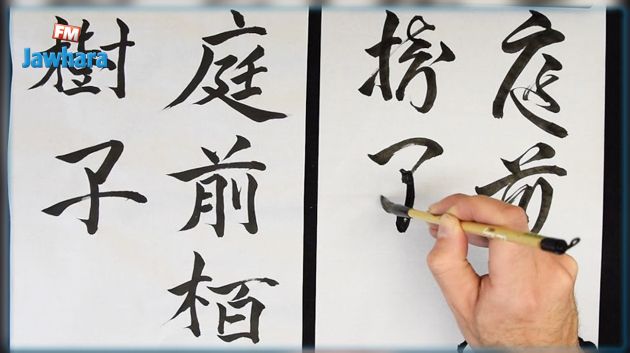 FM
Jawhara
庭前
樹
庭前栢
樹子